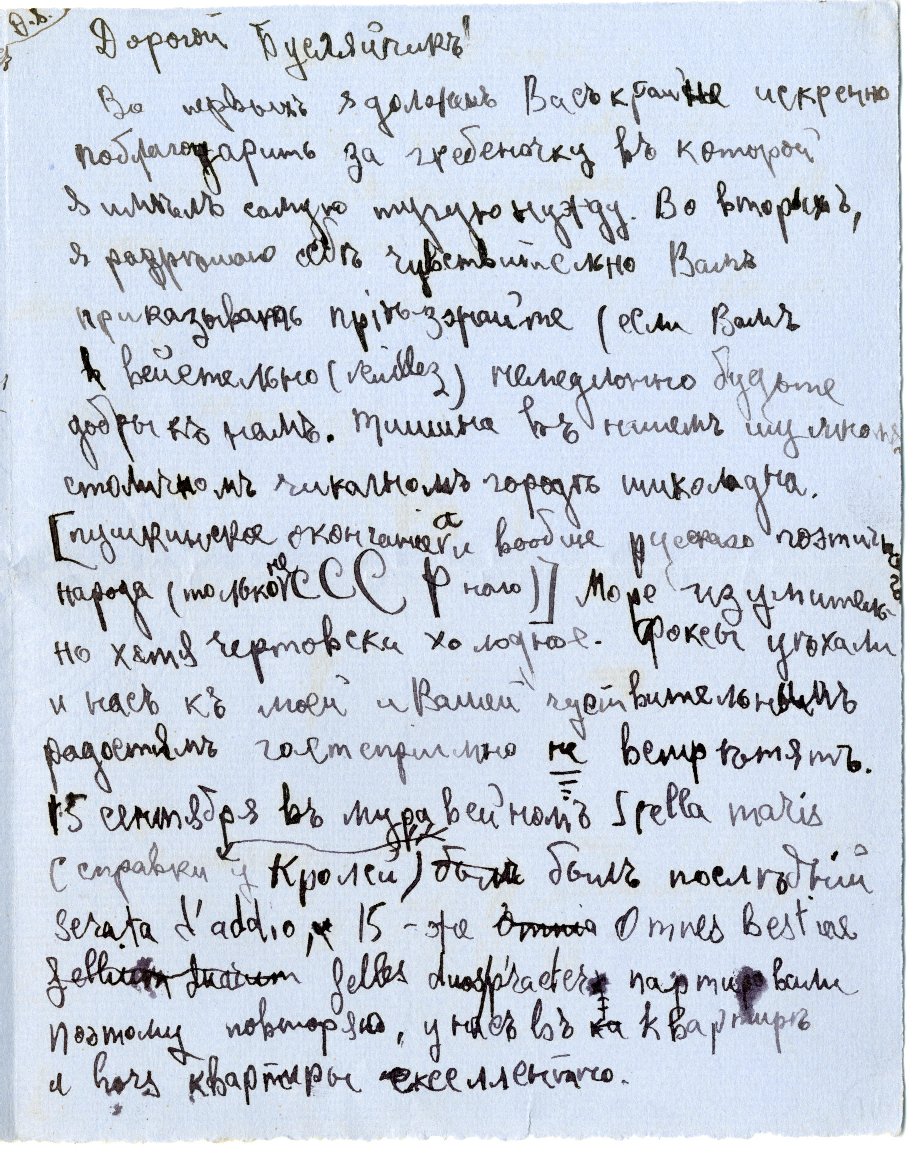 Дорогой Бусляйчикъ!
Во первыхъ я долженъ Васъ крайне искренно
поблагодарить за гребеночку въ которой
я имѣлъ самую тугую нужду. Во вторыхъ,
я разрѣшаю себѣ чувствительно Вамъ
приказывать пріѣзжайте (если Вамъ
) немедленно будьте
добры къ намъ. Тишина въ нашемъ шумномъ
столичномъ чикалномъ городѣ шиколадна.
[пушкинское окончание а и вообще русскаго поэтич
народа (только не СССР наго)] Море изумитель-
но хотя чертовски холодное. Фоксы уѣхали
и насъ къ моей и Вашей чувствительнымъ
радостямъ гостепріимно не встрѣтятъ.
15 сентября въ муравейномъ Stella maris
(справки у Кролей) былъ послѣдній
serata d'addio, 15-же Omnes Bestiae
партировали
Поэтому повторяю, у насъ въ квартирѣ
и внѣ квартиры екселлентно.